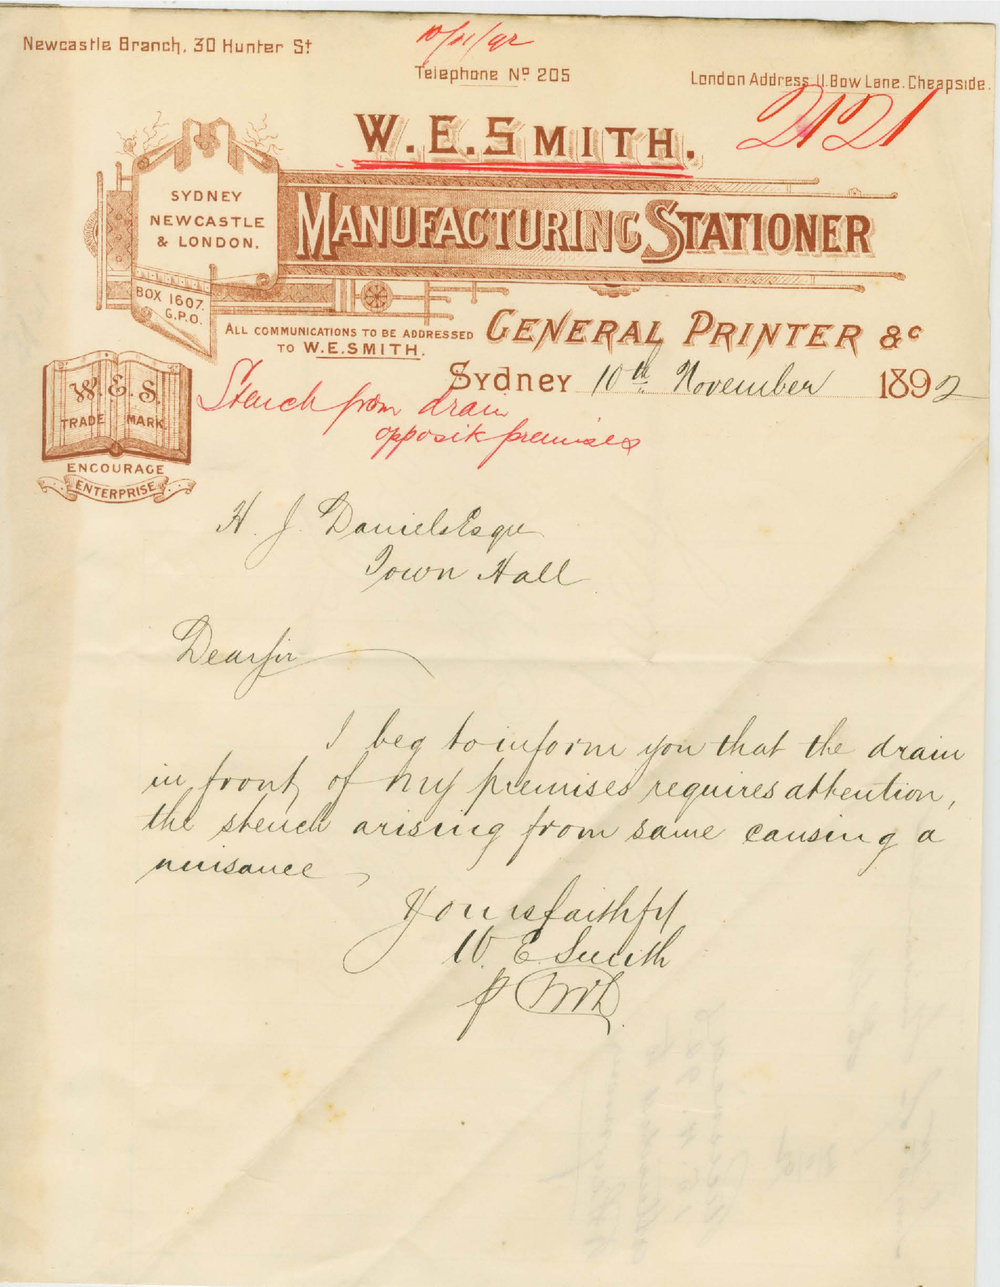 Newcastle Branch, 30 Hunter St
10/11/92
Telephone No 205
London Address 11. Bow Lane. Cheapside.
2121
W. E. SMITH.
SYDNEY
NEWCASTLE
& LONDON.
MANUFACTURING STATIONER
BOX 1607.
G.P.O.
ALL COMMUNICATIONS TO BE ADDRESSED
TO W.E.SMITH.
GENERAL PRINTER &c
Sydney 10th November 1892
Stench from drain
opposite premises
W. E. S.
TRADE MARK
ENCOURAGE
ENTERPRISE
H. J. Daniels Esqre
Town Hall
Dear Sir
I beg to inform you that the drain
in front of my premises requires attention,
the stench arising from same causing a
nuisance
Yours faithfy
W. E. Smith
p